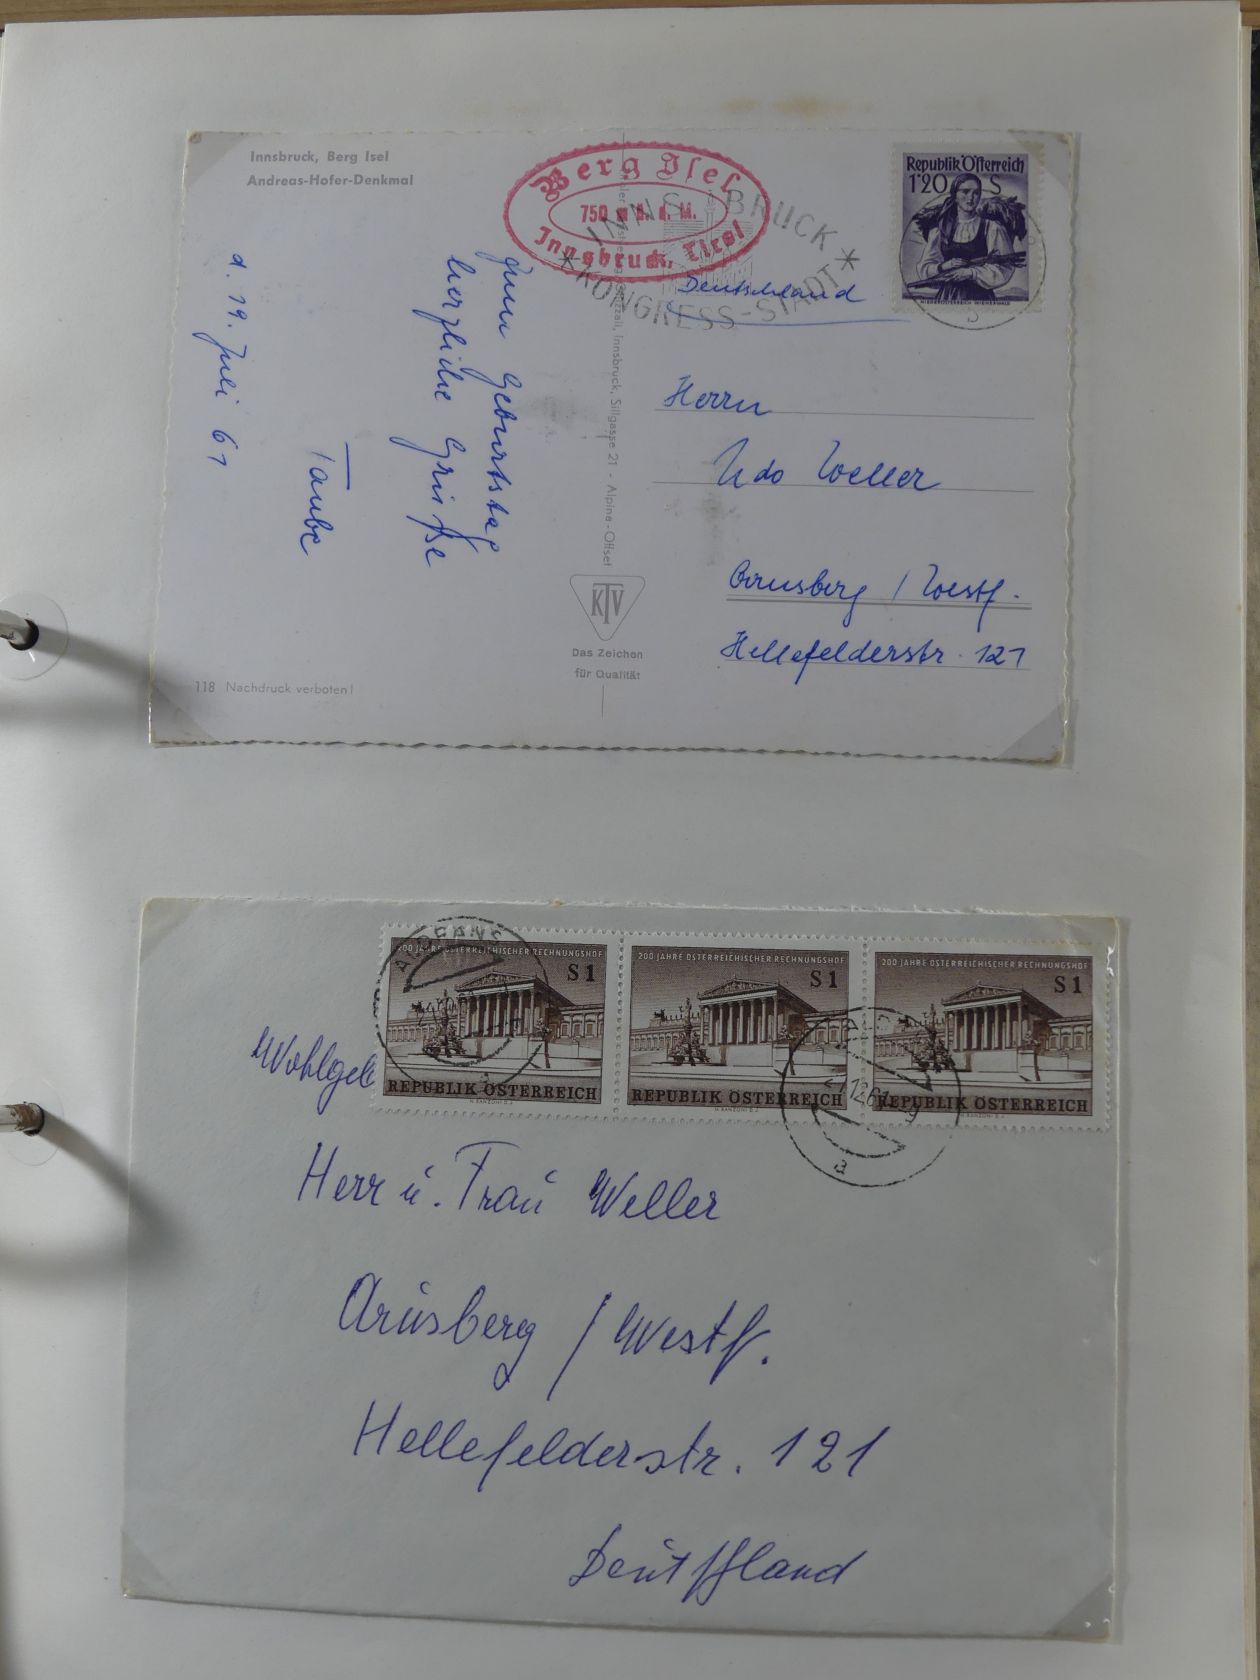 Innsbruck, Berg Isel
Andreas-Hofer-Denkmal
Berg Isel
750 m ü. d. M.
Innsbruck, Tirol
INNSBRUCK
*KONGRESS-STADT*
Republik Österreich
1'20 S
NIEDERÖSTERREICH WIENERWALD
b
Deutschland
Zum Geburtstag
herzliche Grüße
Taube
d. 19. Juli 61
Herrn
Udo Weller
Arnsberg / Westf.
Hellefelderstr. 121
Innsbruck, Sillgasse 21 - Alpine-Offset
KTV
Das Zeichen
für Qualität
118 Nachdruck verboten!
200 JAHRE ÖSTERREICHISCHER RECHNUNGSHOF
S 1
REPUBLIK ÖSTERREICH
200 JAHRE ÖSTERREICHISCHER RECHNUNGSHOF
S 1
REPUBLIK ÖSTERREICH
200 JAHRE ÖSTERREICHISCHER RECHNUNGSHOF
S 1
REPUBLIK ÖSTERREICH
a
Wohlgeb
Herr u. Frau Weller
Arnsberg / Westf.
Hellefelderstr. 121
Deutschland